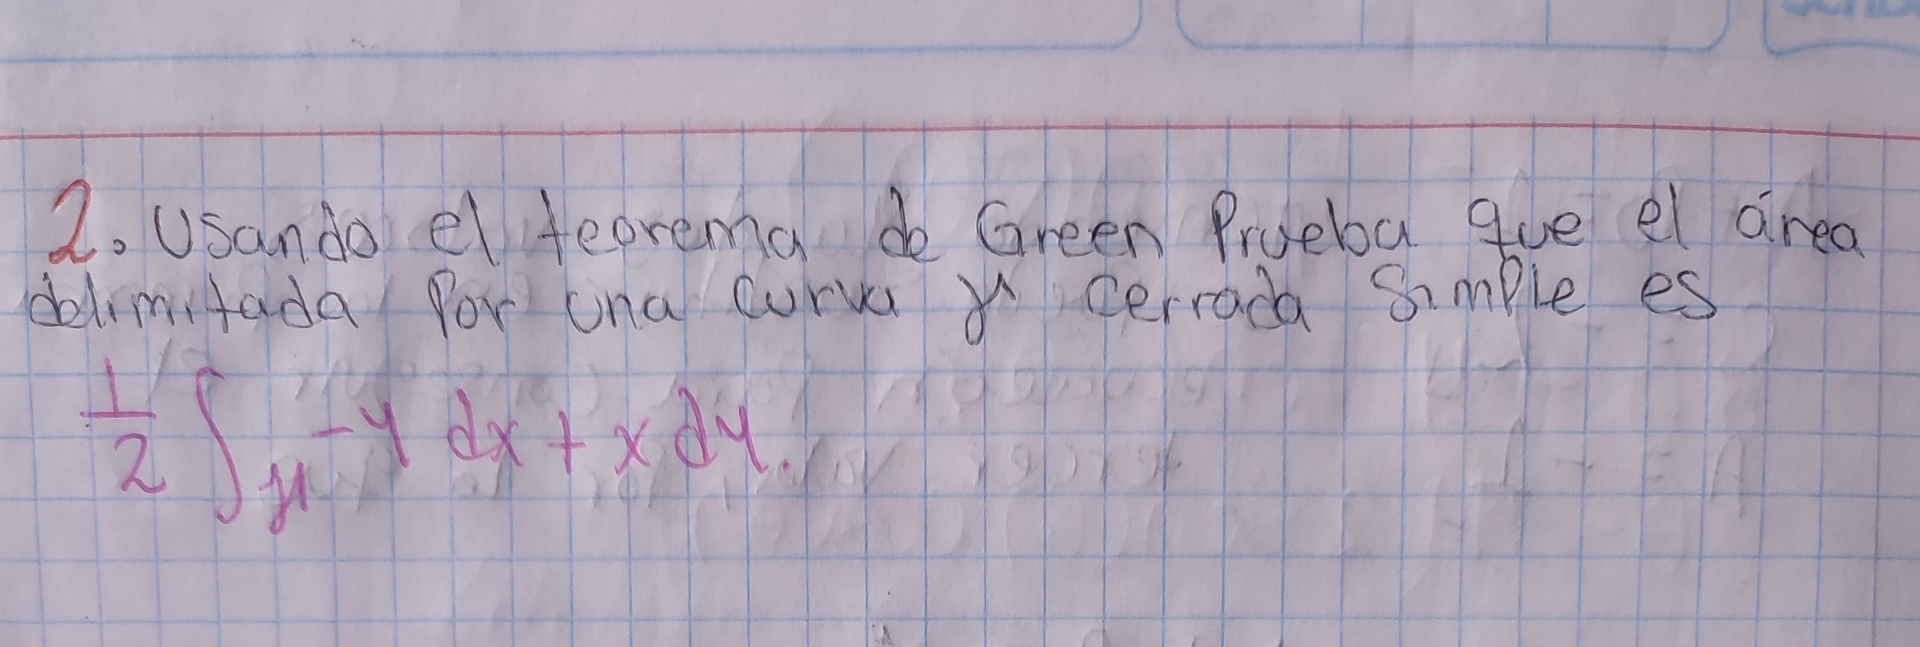 2. Usando el teorema de Green Prueba que el área
delimitada por una curva γ cerrada simple es
1/2 ∫γ -y dx + x dy.